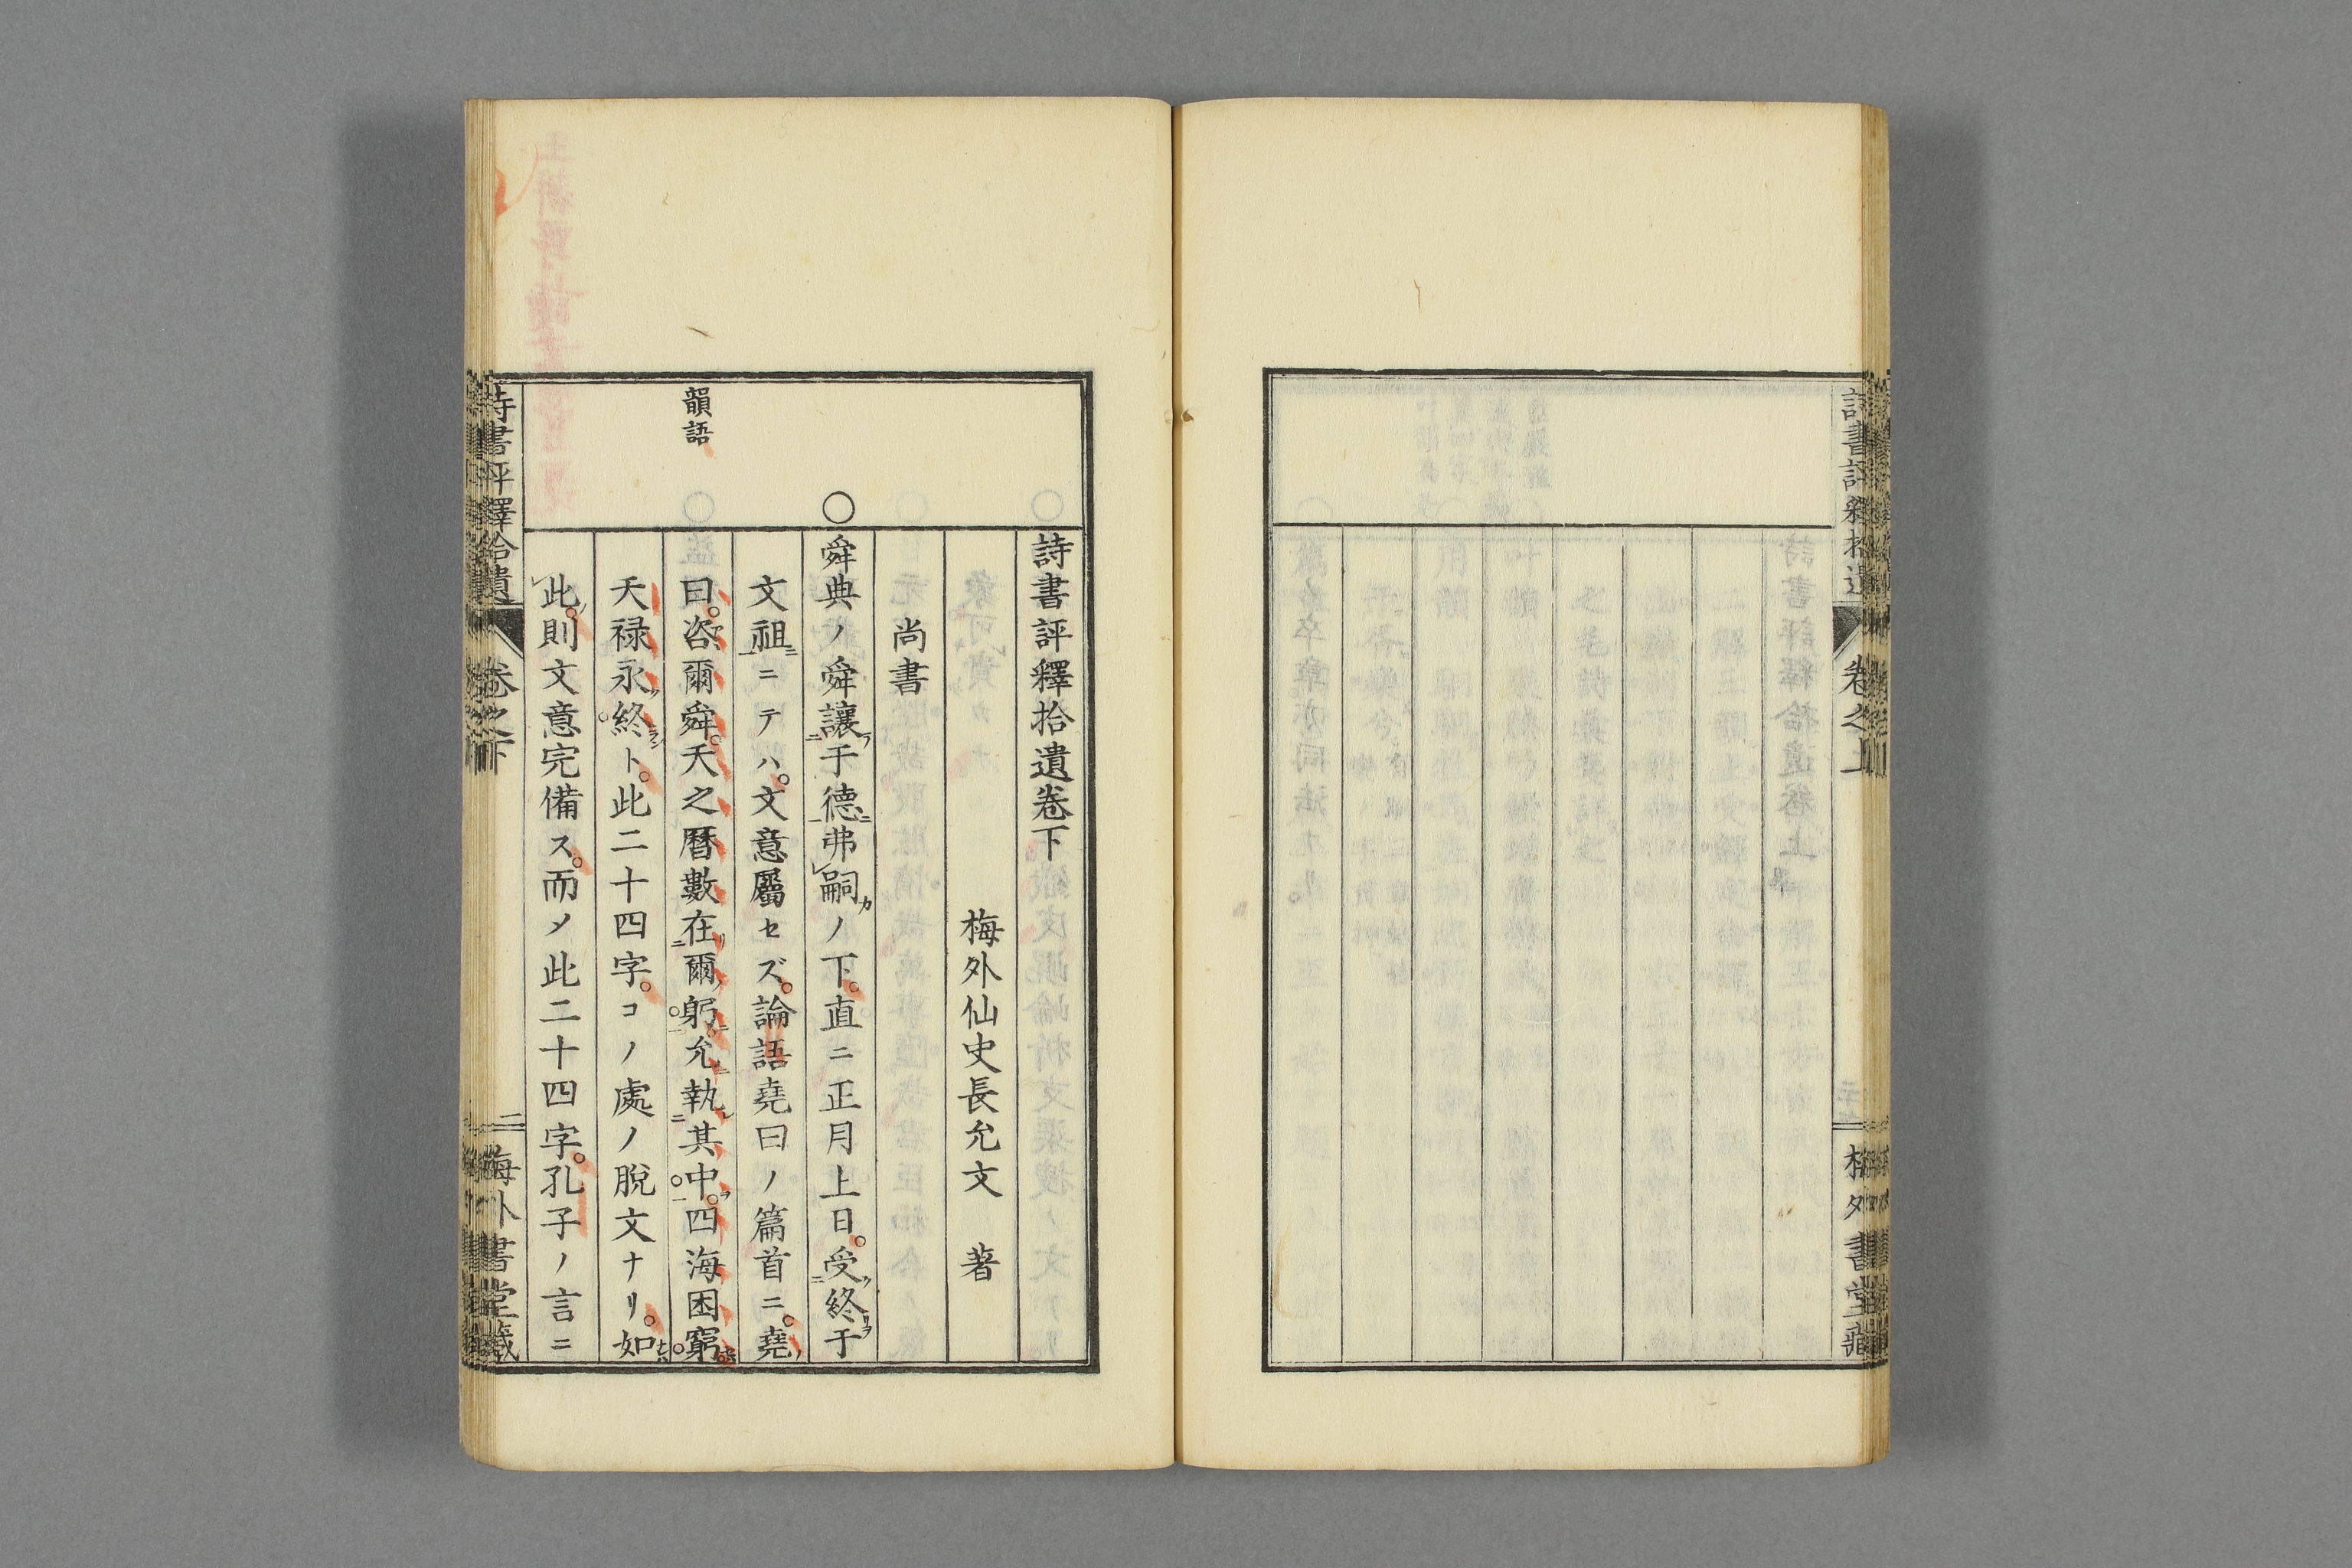 詩書評釋拾遺
卷之上
梅外書堂藏
詩書評釋拾遺卷下
梅外仙史長允文　著
尚書
○
舜典ノ舜讓于德弗嗣ノ下。直ニ正月上日。受終于
文祖ニテハ。文意屬セズ。論語堯曰ノ篇首ニ。堯
韻語
曰。咨爾舜。天之曆數在爾躬。允執其中。四海困窮。
天禄永終ト。此二十四字。コノ處ノ脫文ナリ。如
此。則文意完備ス。而メ此二十四字。孔子ノ言ニ
詩書評釋拾遺
卷之下
一
梅外書堂藏